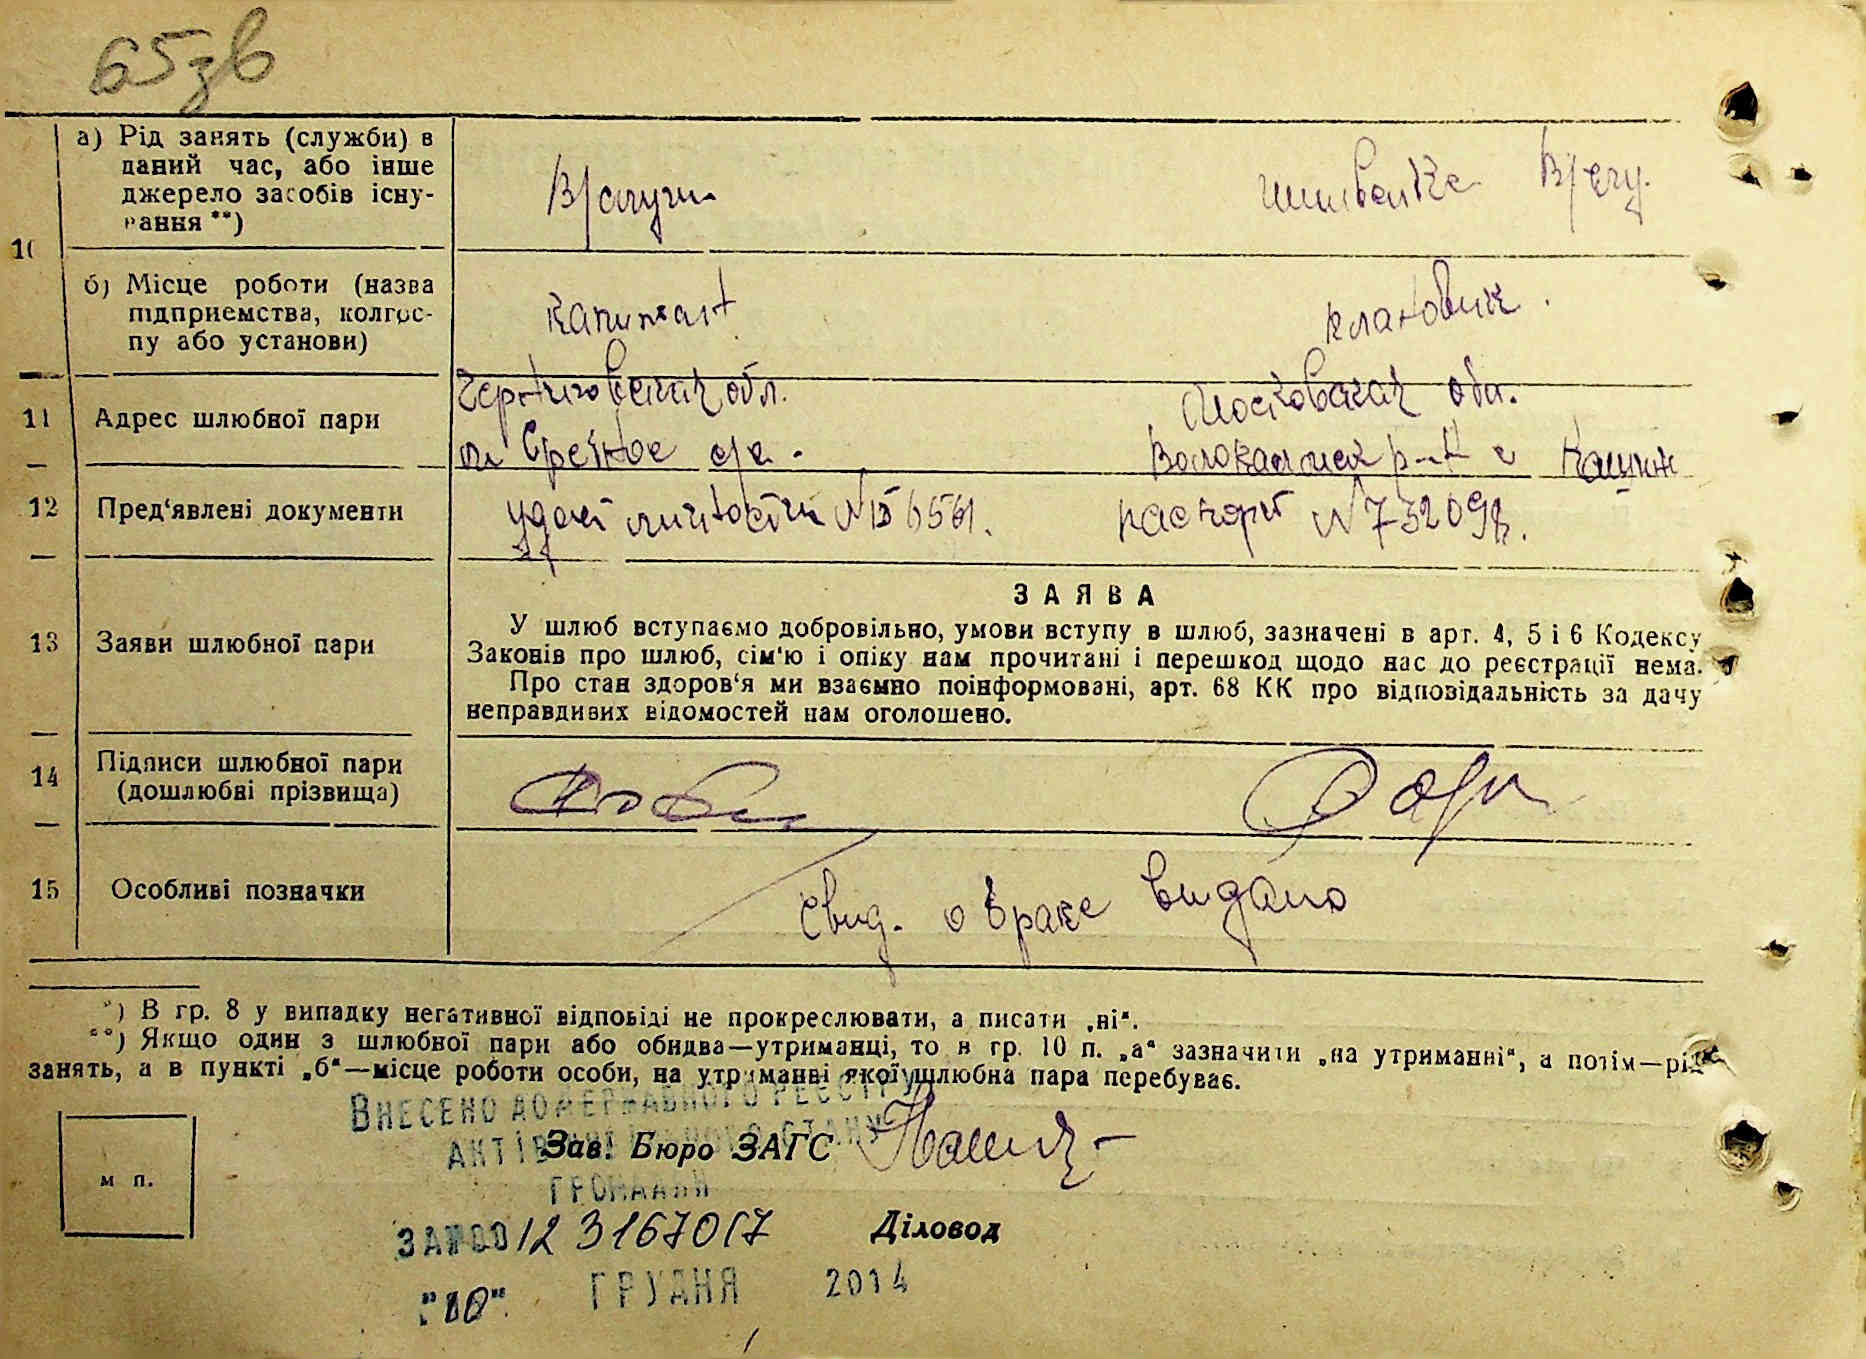 65зв
10
а) Рід занять (служби) в
даний час, або інше
джерело засобів існу-
вання **)
б) Місце роботи (назва
підприємства, колгос-
пу або установи)
капитан
11 Адрес шлюбної пари
Черниговский обл.
Московская обл.
12 Пред‘явлені документи
удост личности № 156561.
паспорт № 732098.
13 Заяви шлюбної пари
ЗАЯВА
У шлюб вступаємо добровільно, умови вступу в шлюб, зазначені в арт. 4, 5 і 6 Кодексу
Законів про шлюб, сім‘ю і опіку нам прочитані і перешкод щодо нас до реєстрації нема.
Про стан здоров‘я ми взаємно поінформовані, арт. 68 КК про відповідальність за дачу
неправдивих відомостей нам оголошено.
14 Підписи шлюбної пари
(дошлюбні прізвища)
15 Особливі позначки
Свид. о браке видано
*) В гр. 8 у випадку негативної відповіді не прокреслювати, а писати „ні“.
**) Якщо один з шлюбної пари або обидва—утриманці, то в гр. 10 п. „а“ зазначити „на утриманні“, а потім—рід
занять, а в пункті „б“—місце роботи особи, на утриманні якої шлюбна пара перебуває.
ВНЕСЕНО ДО ДЕРЖАВНОГО РЕЄСТРУ
АКТІВ ЦИВІЛЬНОГО СТАНУ
Зав. Бюро ЗАГС
ГРОМАДЯН
м п.
ЗА №00123167017
Діловод
"10" ГРУДНЯ 2014